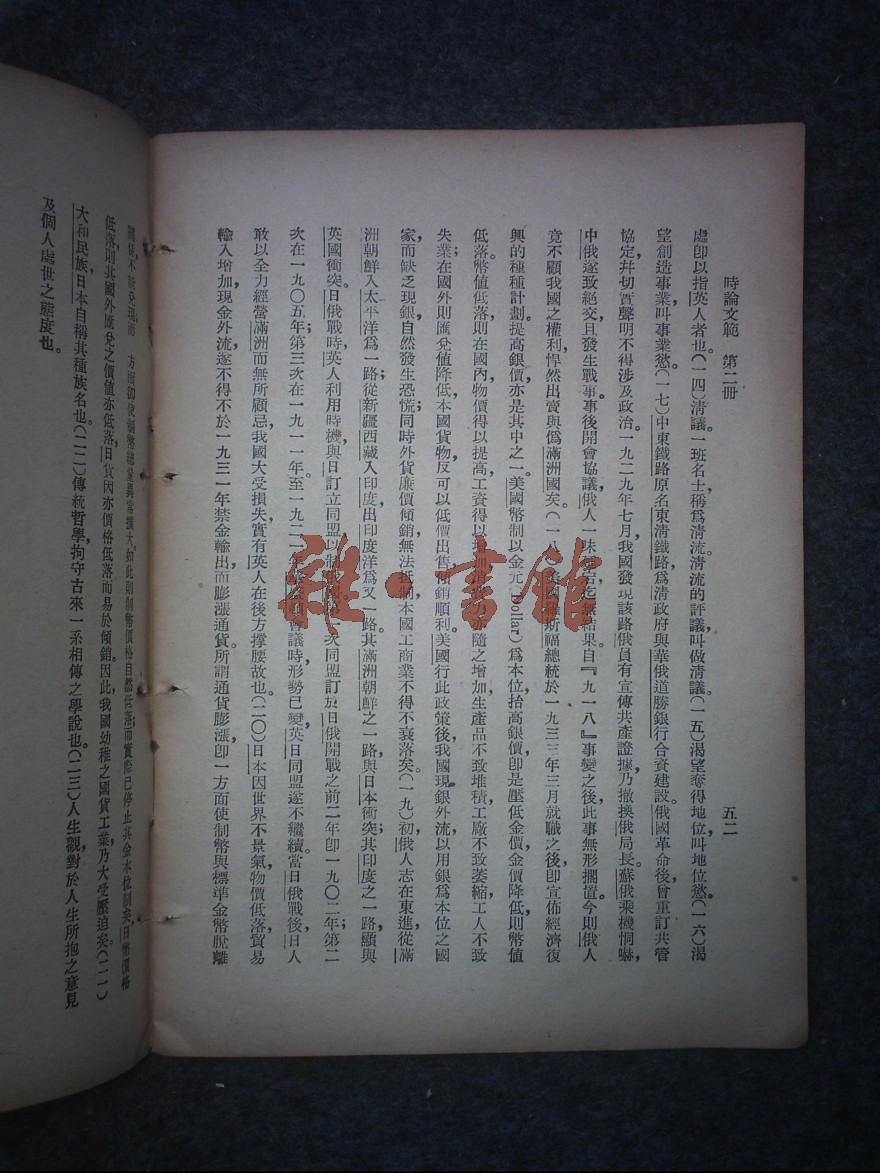 時論文範 第二冊 五二
處卽以指英人者也。(一四)淸議一班名士稱爲淸流。淸流的評議,叫做淸議。(一五)渴望奪得地位,叫地位慾。(一六)渴
望創造事業,叫事業慾。(一七)中東鐵路原名東淸鐵路,爲淸政府與華俄道勝銀行合資建設。俄國革命後,曾重訂共管
協定,幷切實聲明不得涉及政治。一九二九年七月,我國發現該路俄員有宣傳共產證據,乃撤換俄局長。蘇俄乘機恫嚇,
中俄遂致絕交,且發生戰事。事後開會協議,俄人一味 宕,迄無結果。自『九一八』事變之後,此事無形擱置。今則俄人
竟不顧我國之權利,悍然出賣與僞滿洲國矣。(一八)美國羅斯福總統於一九三三年三月就職之後,卽宣佈經濟復
興的種種計劃。提高銀價,亦是其中之一。美國幣制以金元(Dollar)爲本位,抬高銀價,卽是壓低金價,金價降低,則幣值
低落。幣值低落,則在國內物價得以提高,工資得以增加, 力亦隨之增加,生產品不致堆積,工廠不致萎縮,工人不致
失業;在國外則匯兌值降低,本國貨物,反可以低價出售,傾銷順利。美國行此政策後,我國現銀外流,以用銀爲本位之國
家而缺乏現銀,自然發生恐慌;同時外貨廉價傾銷,無法抵制,本國工商業不得不衰落矣。(一九)初,俄人志在東進,從滿
洲朝鮮入太平洋爲一路;從新疆西藏入印度,出印度洋爲又一路。其滿洲朝鮮之一路,與日本衝突;其印度之一路,顯與
英國衝突。日俄戰時,英人利用時機,與日訂立同盟以制俄國。第一次同盟訂於日俄開戰之前二年卽一九〇二年;第二
次在一九〇五年;第三次在一九一一年。至一九二一年 會議時,形勢已變,英日同盟遂不繼續。當日俄戰後,日人
敢以全力經營滿洲而無所顧忌,我國大受損失,實有英人在後方撐腰故也。(二〇)日本因世界不景氣,物價低落,貿易
輸入增加,現金外流,遂不得不於一九三一年禁金輸出,而膨漲通貨。所謂通貨膨漲,卽一方面使制幣與標準金幣脫離
關係,不 兌現;而 方面卻使制幣總量異常擴大,如此則制幣價格自然低落;而實際已停止其金本位制矣。日幣價格
低落,則其國外匯兌之價値亦低落,日貨因亦價格低落而易於傾銷。因此,我國幼稚之國貨工業,乃大受壓迫矣。(二一)
大和民族,日本自稱其種族名也。(二二)傳統哲學,拘守古來一系相傳之學說也。(二三)人生觀,對於人生所抱之意見
及個人處世之態度也。
雜·書館